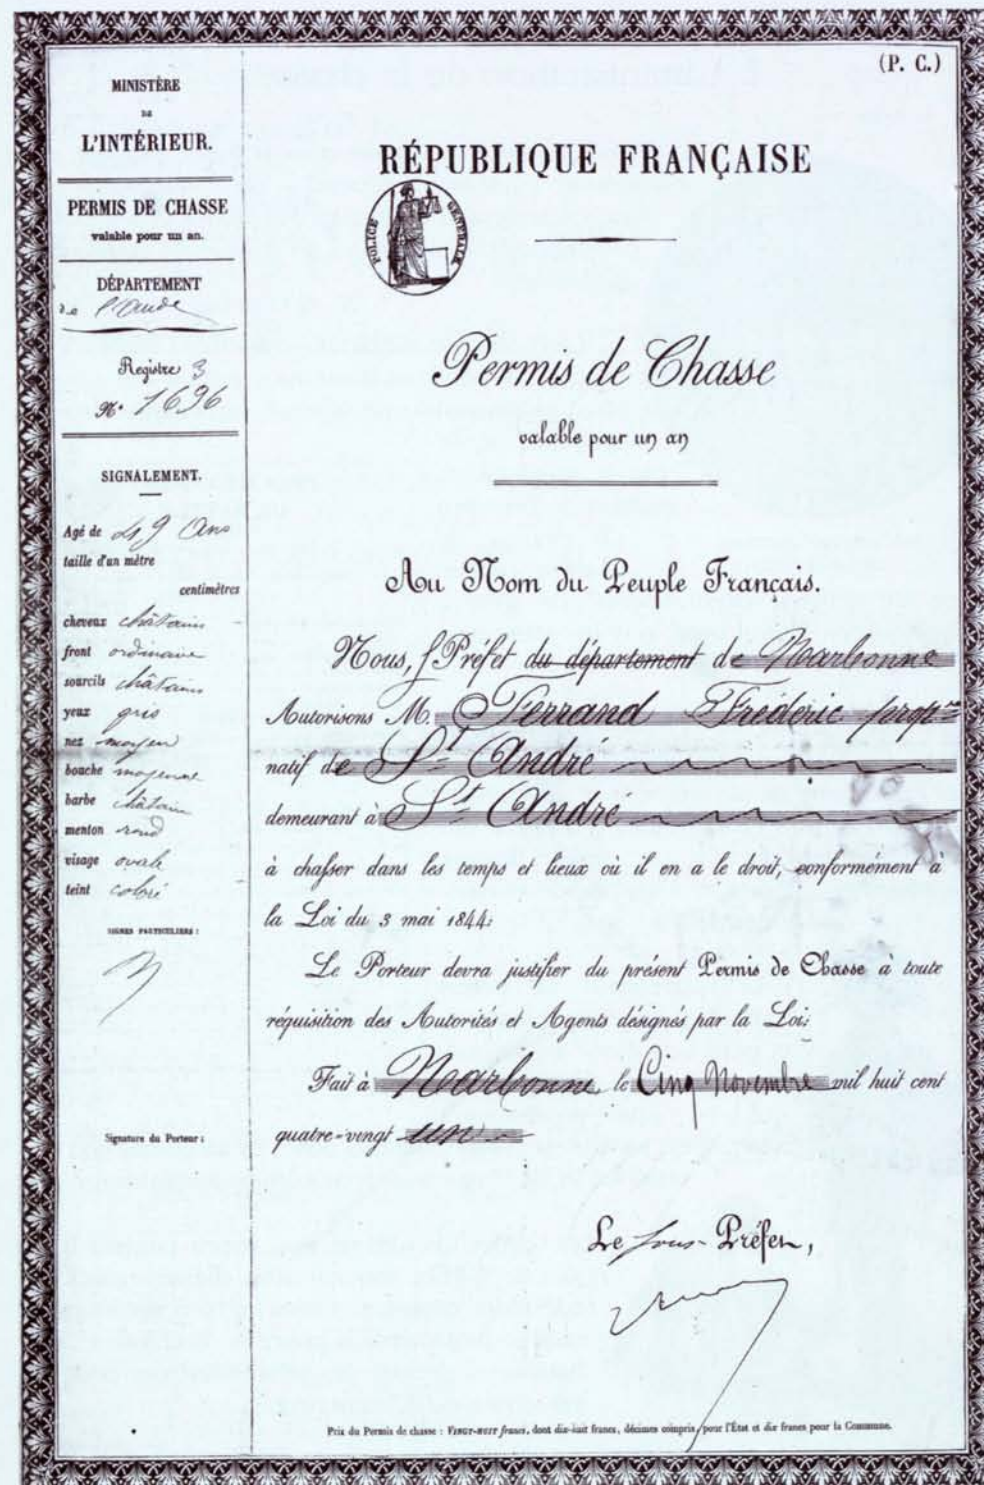 (P. C.)
MINISTÈRE
DE
L'INTÉRIEUR.
PERMIS DE CHASSE
valable pour un an.
DÉPARTEMENT
de l'Aude
Registre 3
N° 1696
SIGNALEMENT.
Agé de 49 Ans
taille d'un mètre
centimètres
cheveux châtains
front ordinaire
sourcils châtains
yeux gris
nez moyen
bouche moyenne
barbe châtain
menton rond
visage ovale
teint coloré
SIGNES PARTICULIERS :
Signature du Porteur :
RÉPUBLIQUE FRANÇAISE
POLICE GÉNÉRALE
Permis de Chasse
valable pour un an
Au Nom du Peuple Français.
Nous, Préfet du département de Narbonne
Autorisons M. Ferrand Frédéric propre
natif de St André
demeurant à St André
à chasser dans les temps et lieux où il en a le droit, conformément à
la Loi du 3 mai 1844.
Le Porteur devra justifier du présent Permis de Chasse à toute
réquisition des Autorités et Agents désignés par la Loi.
Fait à Narbonne le Cinq Novembre mil huit cent
quatre-vingt un
Le sous-Préfet,
Prix du Permis de chasse : VINGT-HUIT francs, dont dix-huit francs, décimes compris, pour l'État et dix francs pour la Commune.